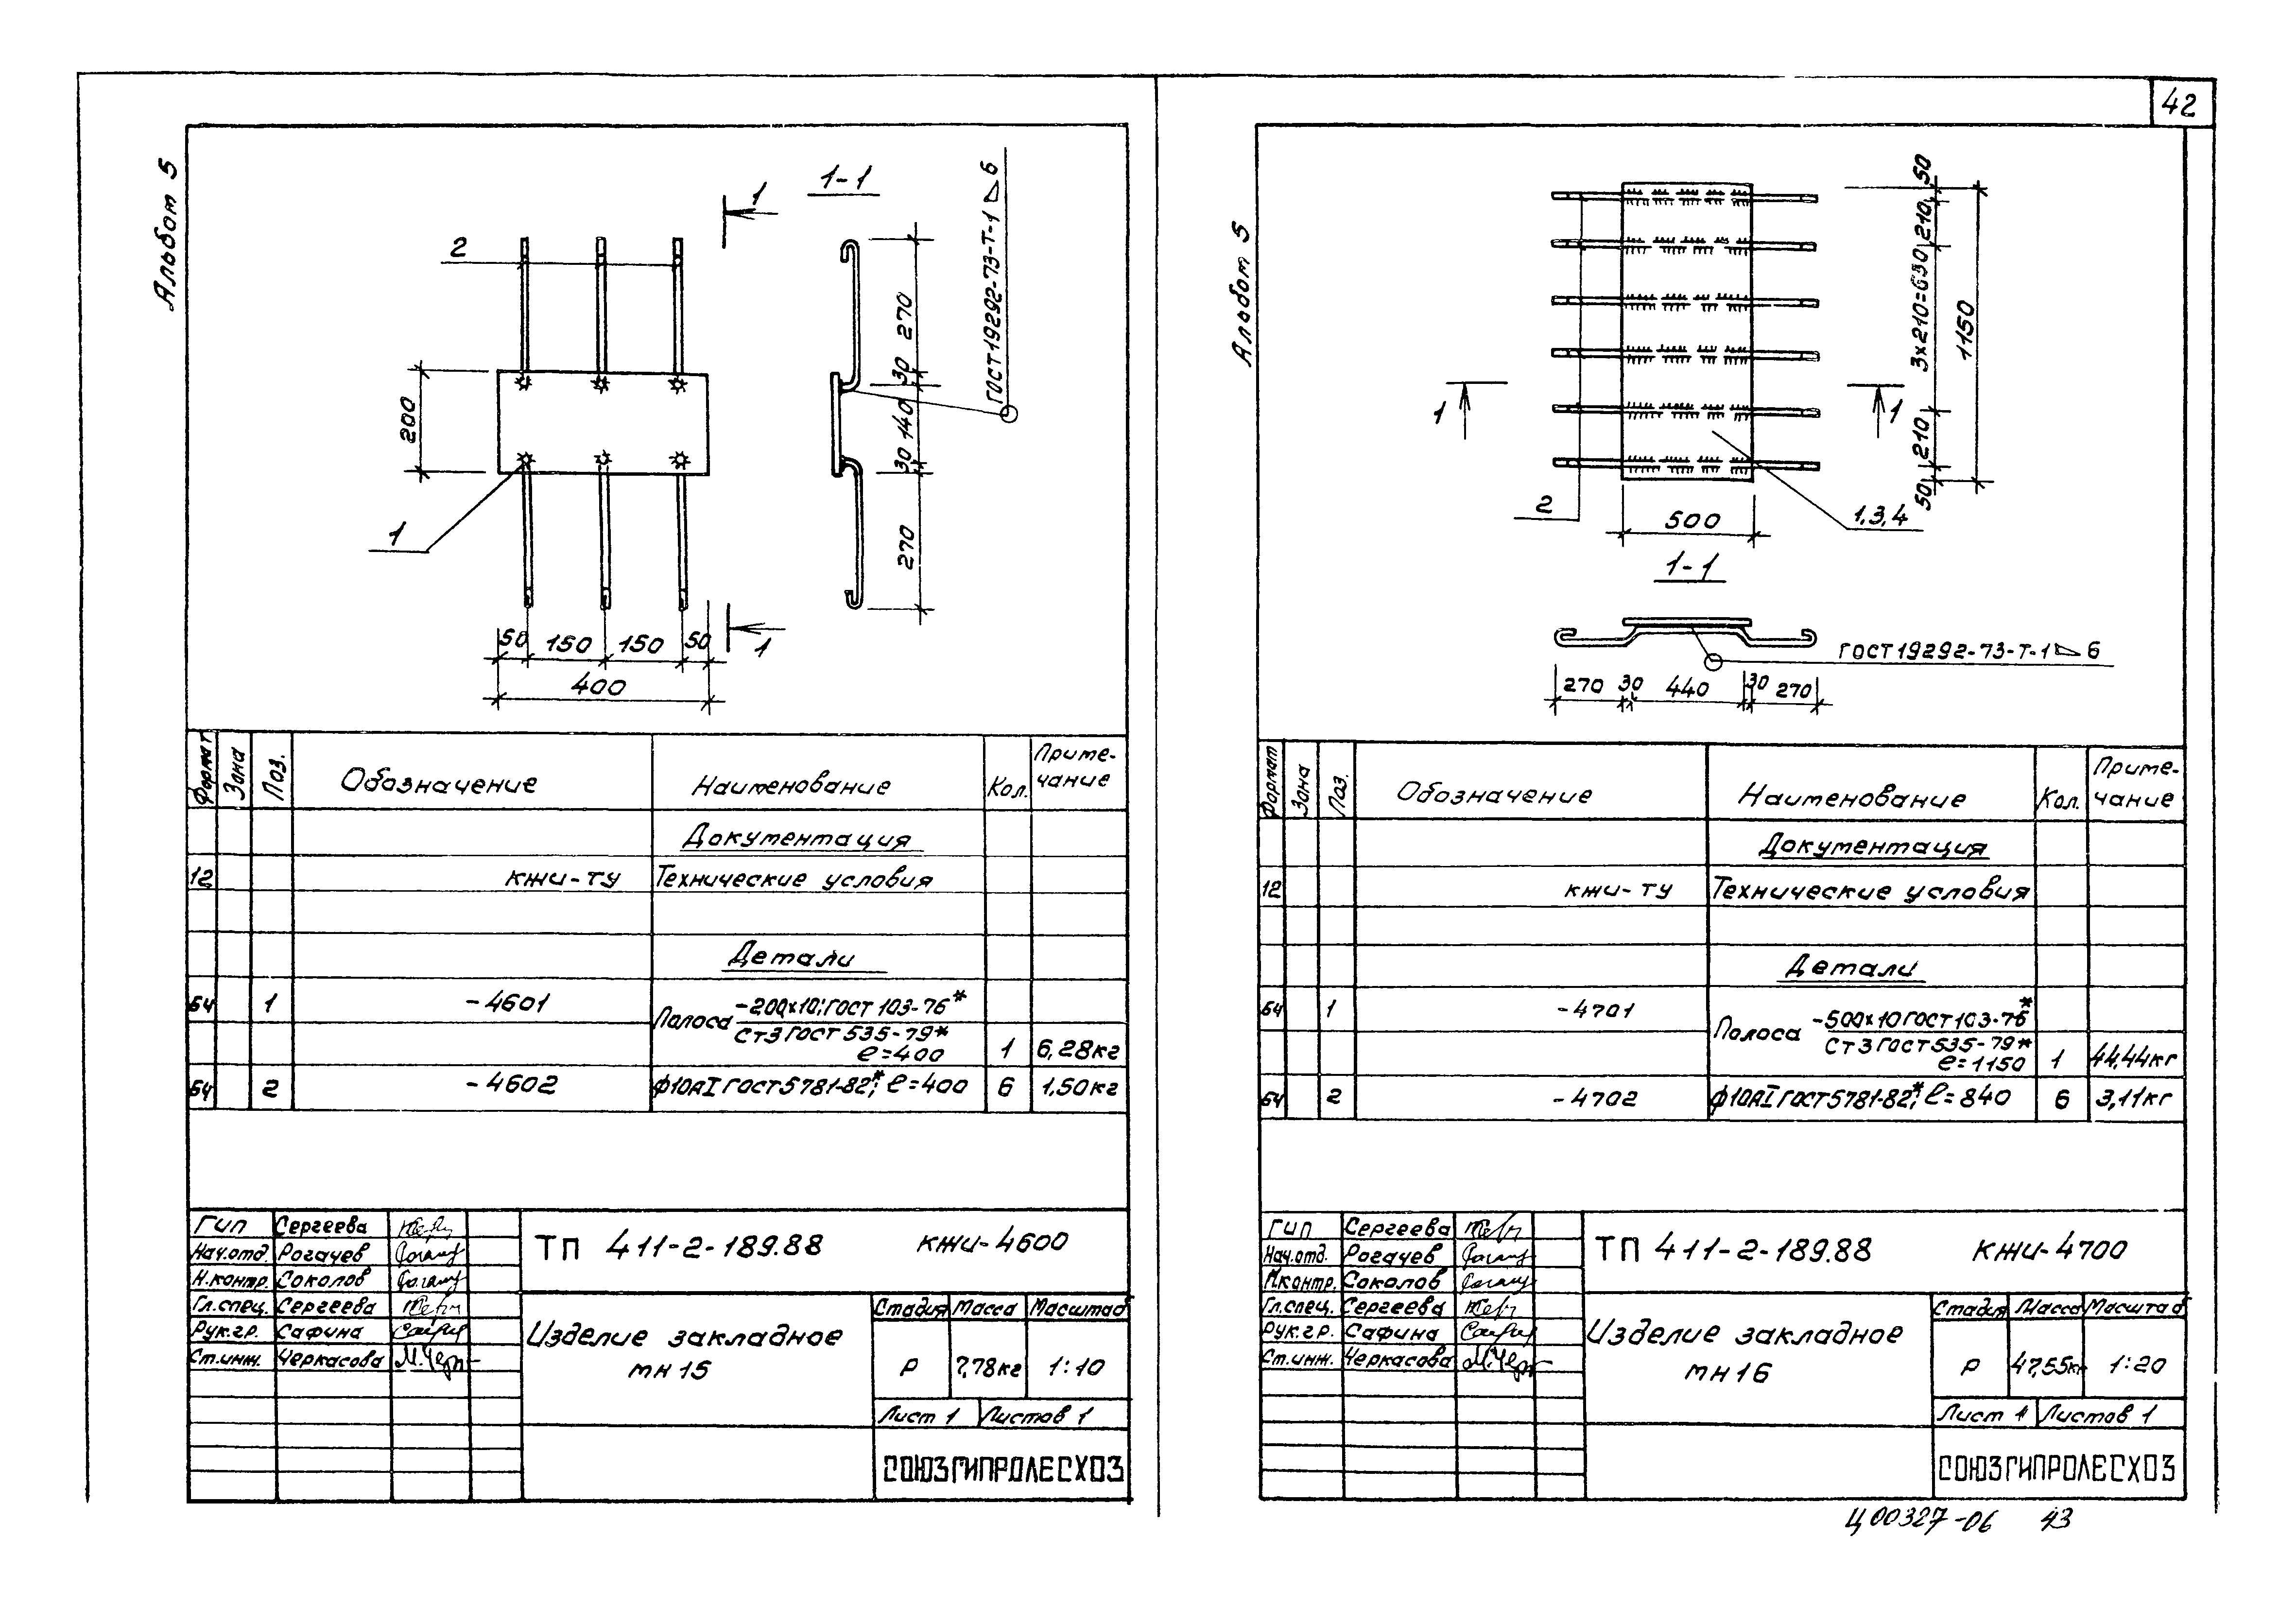 42
Альбом 5
1-1
1
2
270
30
140
30
270
ГОСТ 19292-73-Т-1 6
200
1
50 150 150 50
400
1
Формат Зона Поз. Обозначение Наименование Кол. Приме-
чание
Документация
12 КЖИ-ТУ Технические условия
Детали
БЧ 1 -4601 Полоса -200х10; ГОСТ 103-76*
Ст3 ГОСТ 535-79*
ℓ=400 1 6,28кг
БЧ 2 -4602 ф10АI ГОСТ 5781-82*; ℓ=400 6 1,50кг
ГИП Сергеева
Нач.отд. Рогачев
Н.контр. Соколов
Гл.спец. Сергеева
Рук.гр. Сафина
Ст.инж. Черкасова
ТП 411-2-189.88 КЖИ-4600
Изделие закладное
МН15
Стадия Масса Масштаб
Р 7,78кг 1:10
Лист 1 Листов 1
СОЮЗГИПРОЛЕСХОЗ
Альбом 5
50
210
3х210=630
210
50
1150
1
1
2
500
1,3,4
1-1
ГОСТ 19292-73-Т-1 6
270 30 440 30 270
Формат Зона Поз. Обозначение Наименование Кол. Приме-
чание
Документация
12 КЖИ-ТУ Технические условия
Детали
БЧ 1 -4701 Полоса -500х10 ГОСТ 103-76*
Ст3 ГОСТ 535-79*
ℓ=1150 1 44,44кг
БЧ 2 -4702 ф10АI ГОСТ 5781-82*; ℓ=840 6 3,11кг
ГИП Сергеева
Нач.отд. Рогачев
Н.контр. Соколов
Гл.спец. Сергеева
Рук.гр. Сафина
Ст.инж. Черкасова
ТП 411-2-189.88 КЖИ-4700
Изделие закладное
МН16
Стадия Масса Масштаб
Р 47,55кг 1:20
Лист 1 Листов 1
СОЮЗГИПРОЛЕСХОЗ
Ц00327-06 43